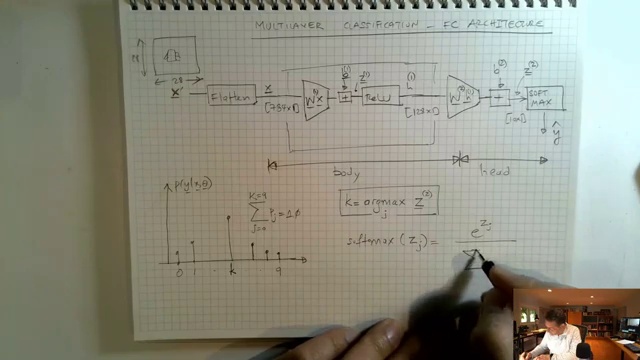 MULTILAYER CLASSIFICATION - FC ARCHITECTURE
28
28
X
Flatten
x
[784x1]
W⁽¹⁾x
b⁽¹⁾
+
z⁽¹⁾
ReLU
h⁽¹⁾
[128x1]
W⁽²⁾h⁽¹⁾
b⁽²⁾
+
z⁽²⁾
[10x1]
SOFT
MAX
ŷ
body
head
p(y|x,θ)
K=9
Σ pⱼ = 1.0
j=0
0 1 K 9
K = argmax z⁽²⁾
j
softmax (zⱼ) = e^zⱼ
Σ